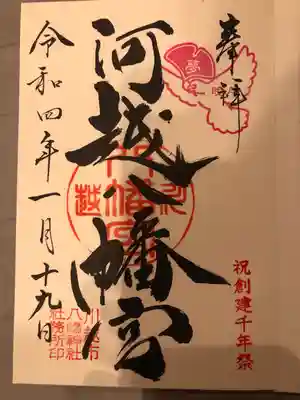 奉拝
夢
祝創建千年祭
河越八幡宮
川越市
八幡神社
社務所印
令和四年一月十九日